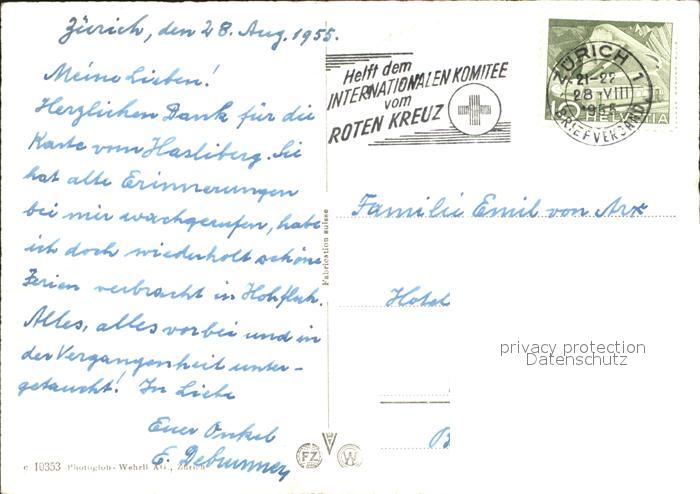 Zürich, den 28. Aug. 1955.
Meine Lieben!
Herzlichen Dank für die
Karte vom Hasliberg. Sie
hat alte Erinnerungen
bei mir wachgerufen, habe
ich doch wiederholt schöne
Ferien verbracht in Hohfluh.
Alles, alles vorbei und in
der Vergangenheit unter-
getaucht! In Liebe
Euer Onkel
E. Debrunner
c 10353 Photoglob-Wehrli AG., Zürich
Fabrication suisse
FZ
W
Helft dem
INTERNATIONALEN KOMITEE
vom
ROTEN KREUZ
ZÜRICH 1
21-22
28 VIII
1955
BRIEFVERSAND
10
HELVETIA
Familie Emil von Arx
Hotel
B
privacy protection
Datenschutz